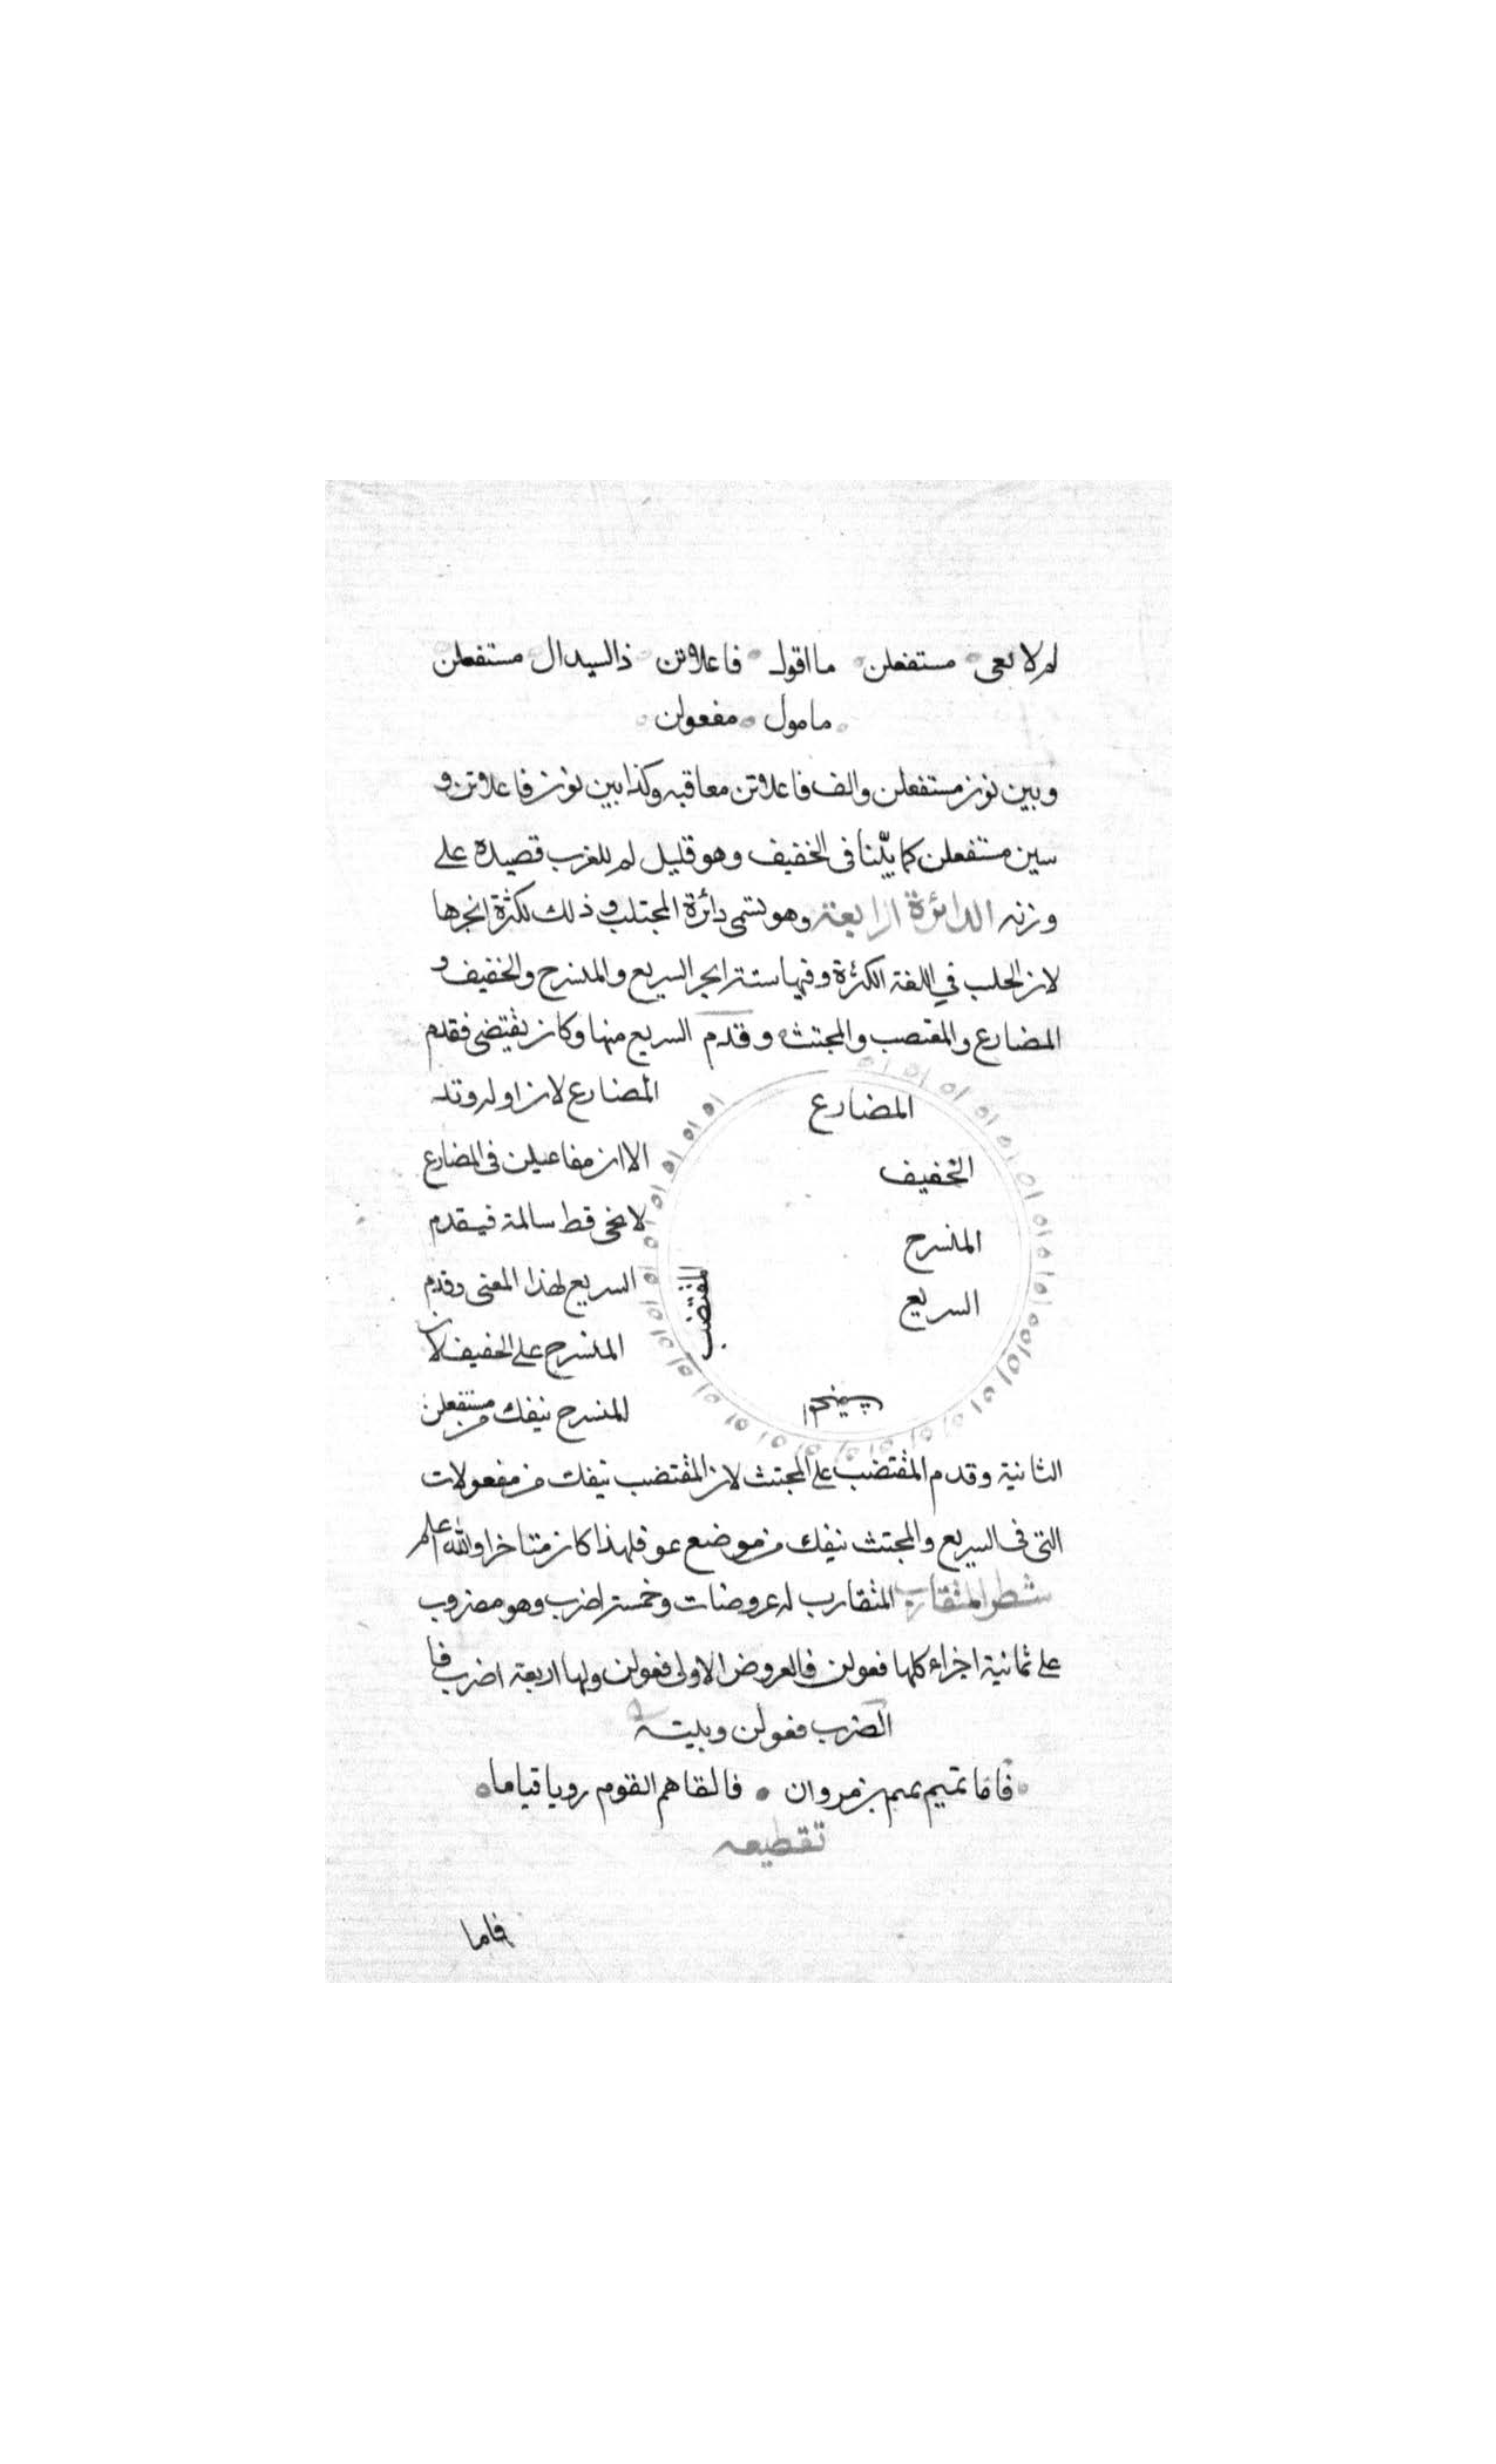 لم لا يعي مستفعلن ما اقول فاعلاتن ذالسيدال مستفعلن
مامول مفعولن
وبين نون مستفعلن والف فاعلاتن معاقبه وكذا بين نون فاعلاتن و
سين مستفعلن كما بيّنا في الخفيف وهو قليل لم للعرب قصيدة على
وزنه الدائرة الرابعة وهو يسمى دائرة المجتلب وذلك لكثرة ابحرها
لان الجلب في اللغة الكثرة وفيها ستة ابحر السريع والمنسرح والخفيف و
المضارع والمقتضب والمجتث وقدم السريع منها وكان يقتضي فقدم
المضارع لان اوله وتد
الا ان مفاعيلن في المضارع
لا يجي قط سالمة فيقدم
السريع لهذا المعنى وقدم
المنسرح على الخفيف لان
المنسرح ينفك من مستفعلن
المضارع
الخفيف
المنسرح
السريع
المقتضب
الثانية وقدم المقتضب على المجتث لان المقتضب ينفك من مفعولات
التي في السريع والمجتث ينفك من موضع عو فلهذا كان متاخرا والله اعلم
شطر المتقارب المتقارب له عروضات وخمسة اضرب وهو مضروب
على ثمانية اجزاء كلها فعولن فالعروض الاولى فعولن ولها اربعة اضرب فا
الضرب فعولن وبيته
فاما تميم تميم بن مروان فالقاهم القوم رويا قياما
تقطيعه
فاما